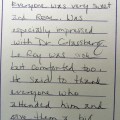 Everyone was very sweet
and kind. Was
especially impressed
with Dr.
Le Roy was
but comforted too.
He said to thank
everyone who
attended him and
give them a